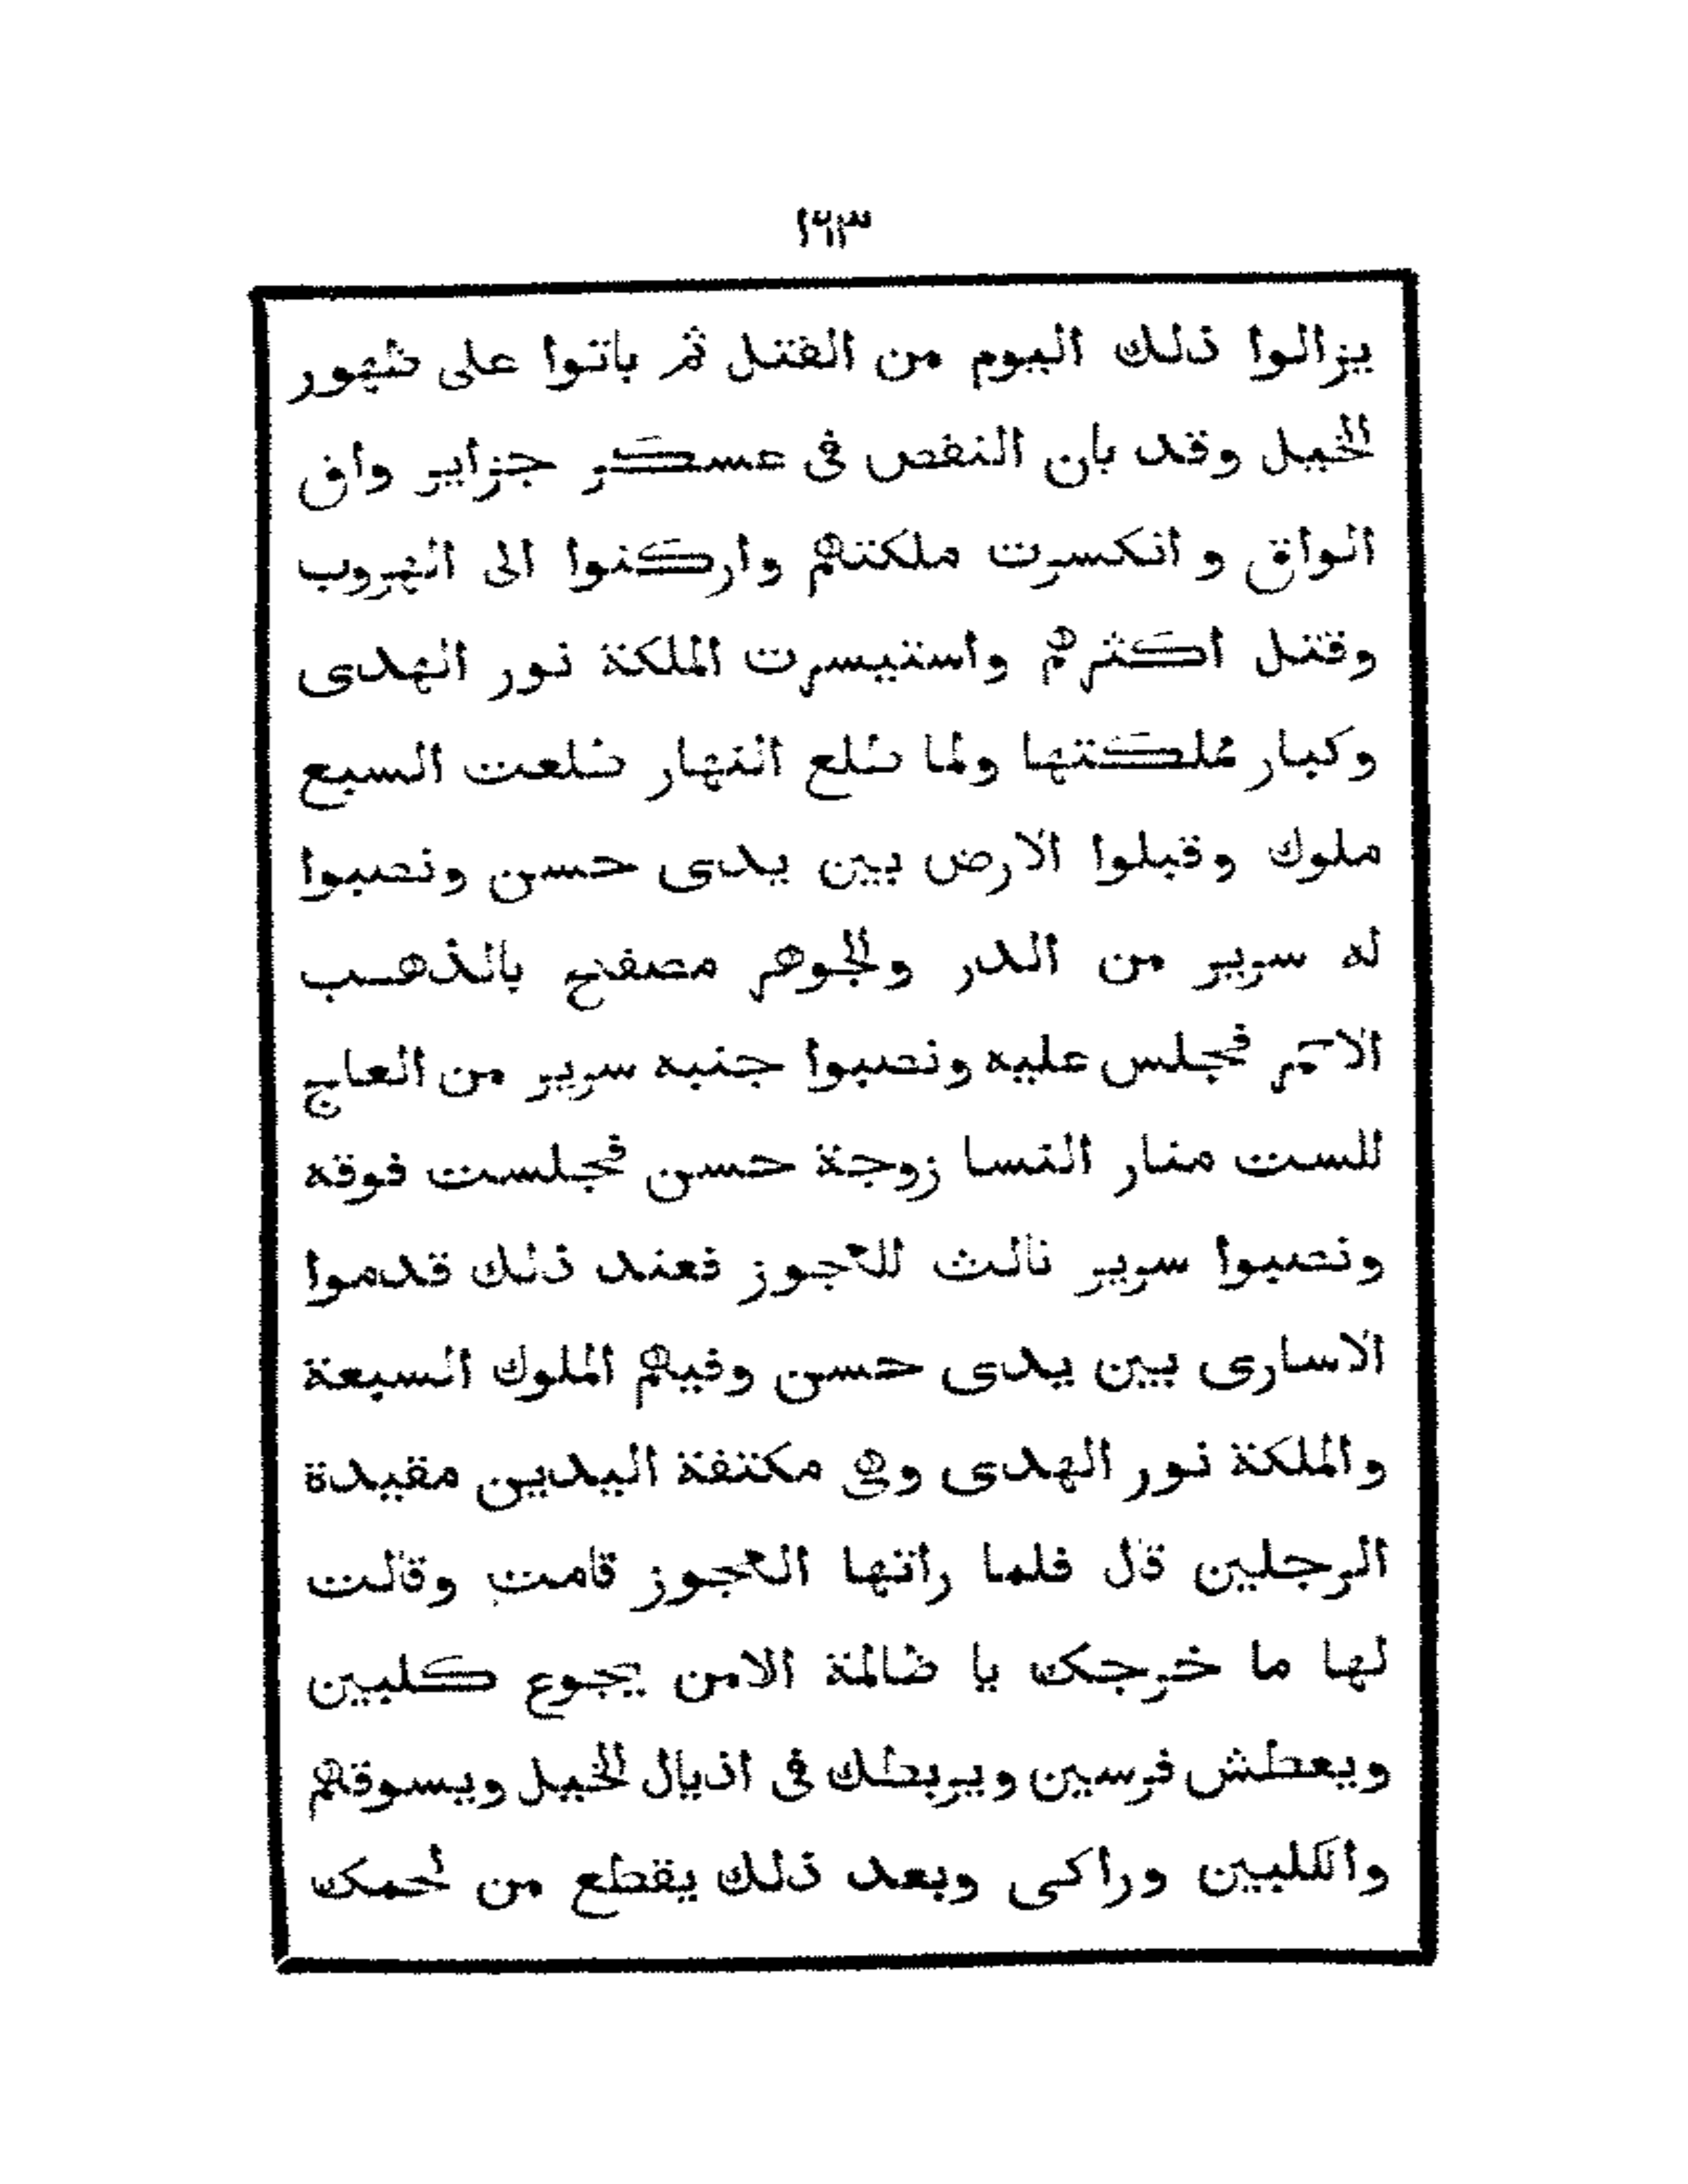 ١٦٣
يزالوا ذلك اليوم من القتل ثم باتوا على ظهور
الخيل وقد بان النقص فى عسكر جزاير واق
الواق و انكسرت ملكتهم واركنوا الى الهروب
وقتل اكثرهم واستيسرت الملكة نور الهدى
وكبار مملكتها ولما طلع النهار طلعت السبع
ملوك وقبلوا الارض بين يدى حسن ونصبوا
له سرير من الدر والجوهر مصفح بالذهب
الاحمر فجلس عليه ونصبوا جنبه سرير من العاج
للست منار النسا زوجة حسن فجلست فوقه
ونصبوا سرير ثالث للعجوز فعند ذلك قدموا
الاسارى بين يدى حسن وفيهم الملوك السبعة
والملكة نور الهدى وهى مكتفة اليدين مقيدة
الرجلين قال فلما راتها العجوز قامت وقالت
لها ما خرجك يا ظالمة الامن يجوع كلبين
ويعطش فرسين ويربطك فى اذيال الخيل ويسوقهم
والكلبين وراكى وبعد ذلك يقطع من لحمك